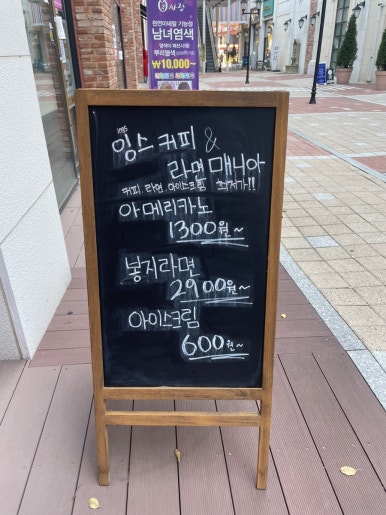 사랑
천연미네랄 기능성
남녀염색
염색이 복잡시대!
뿌리염색
₩10,000~
ings
잉스 커피 &
라면매니아
커피 라면 아이스크림 최저가!!
아메리카노
1300원~
봉지라면
2900원~
아이스크림
600원~